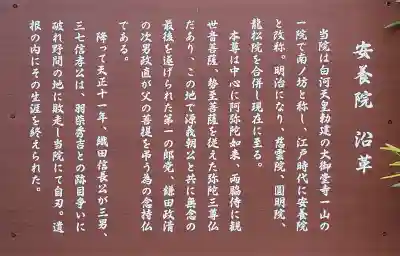 安養院 沿革
当院は白河天皇勅建の大御堂寺一山の
一院で南ノ坊と称し、江戸時代に安養院
と改称。明治になり、慈雲院、圓明院、
龍松院を合併し現在に至る。
本尊は中心に阿弥陀如来、両脇侍に観
世音菩薩、勢至菩薩を従えた弥陀三尊仏
であり、この地で源義朝公と共に無念の
最後を遂げられた第一の郎党、鎌田政清
の次男政直が父の菩提を弔う為の念持仏
である。
降って天正十一年、織田信長公が三男、
三七信孝公は、羽柴秀吉との跡目争いに
破れ野間の地に敗走し当院にて自刃。遺
根の内にその生涯を終えられた。